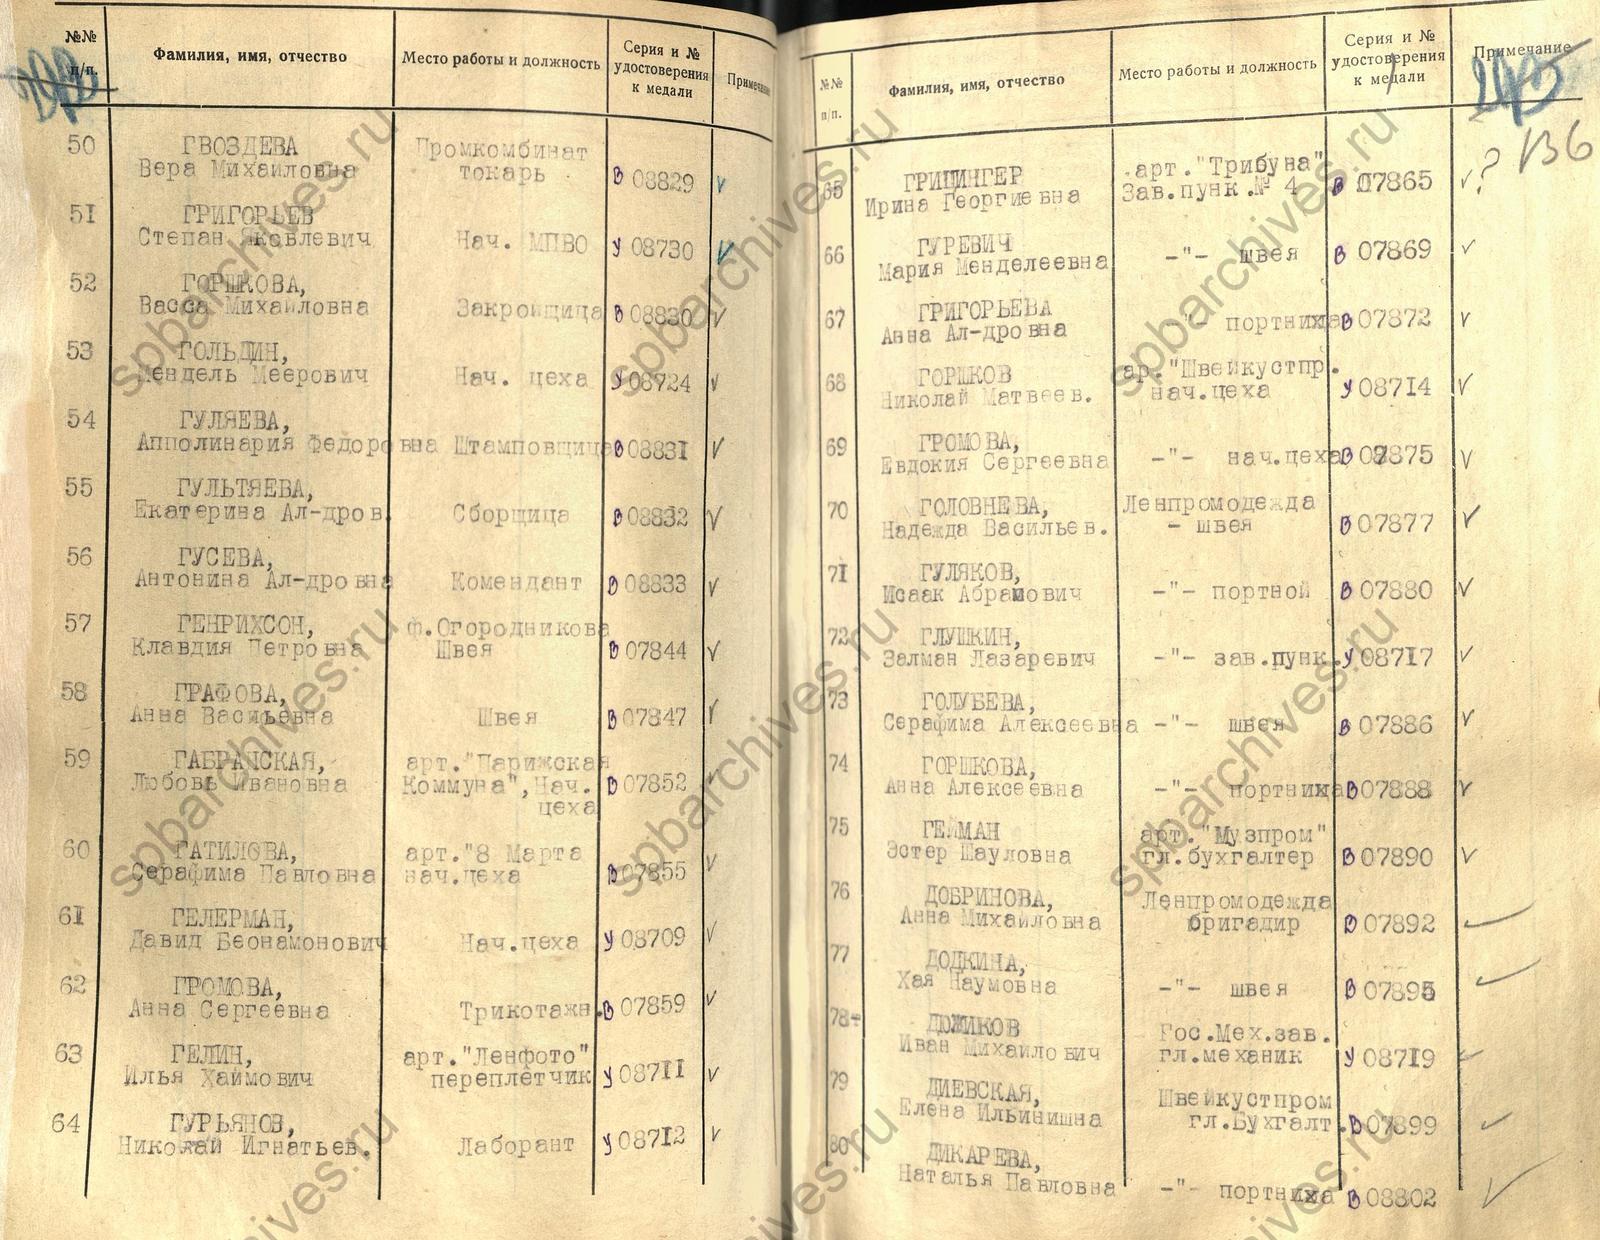 №№ п/п.
Фамилия, имя, отчество
Место работы и должность
Серия и № удостоверения к медали
Примечание
50 ГВОЗДЕВА Промкомбинат
Вера Михайловна токарь В 08829 ✓
51 ГРИГОРЬЕВ
Степан Яковлевич Нач. МПВО У 08730 ✓
52 ГОРШКОВА,
Васса Михайловна Закройщица В 08830 ✓
53 ГОЛЬДИН,
Мендель Меерович Нач. цеха У 08724 ✓
54 ГУЛЯЕВА,
Апполинария Федоровна Штамповщица В 08831 ✓
55 ГУЛЬТЯЕВА,
Екатерина Ал-дров. Сборщица В 08832 ✓
56 ГУСЕВА,
Антонина Ал-дровна Комендант В 08833 ✓
57 ГЕНРИХСОН, ф.Огородникова
Клавдия Петровна Швея В 07844 ✓
58 ГРАФОВА,
Анна Васильевна Швея В 07847 ✓
59 ГАБРАНСКАЯ, арт."Парижская
Любовь Ивановна Коммуна",Нач. В 07852 ✓
цеха
60 ГАТИЛОВА, арт."8 Марта
Серафима Павловна нач.цеха В 07855 ✓
61 ГЕЛЕРМАН,
Давид Беонамонович Нач.цеха У 08709 ✓
62 ГРОМОВА,
Анна Сергеевна Трикотажн. В 07859 ✓
63 ГЕЛИН, арт."Ленфото"
Илья Хаймович переплетчик У 08711 ✓
64 ГУРЬЯНОВ,
Николай Игнатьев. Лаборант У 08712 ✓
№№ п/п.
Фамилия, имя, отчество
Место работы и должность
Серия и № удостоверения к медали
Примечание
136
65 ГРИЦИНГЕР арт."Трибуна"
Ирина Георгиевна Зав.пунк.№ 4 В 07865 ✓?
66 ГУРЕВИЧ
Мария Менделеевна -"- швея В 07869 ✓
67 ГРИГОРЬЕВА
Анна Ал-дровна -"- портниха В 07872 ✓
68 ГОРШКОВ ар."Швейкустпр.
Николай Матвеев. нач.цеха У 08714 ✓
69 ГРОМОВА,
Евдокия Сергеевна -"- нач.цеха В 07875 ✓
70 ГОЛОВНЕВА, Ленпромодежда
Надежда Васильев. - швея В 07877 ✓
71 ГУЛЯКОВ,
Исаак Абрамович -"- портной В 07880 ✓
72 ГЛУШКИН,
Залман Лазаревич -"- зав.пунк. У 08717 ✓
73 ГОЛУБЕВА,
Серафима Алексеевна -"- швея В 07886 ✓
74 ГОРШКОВА,
Анна Алексеевна -"- портниха В 07888 ✓
75 ГЕЙМАН арт."Музпром"
Эстер Шауловна гл.бухгалтер В 07890 ✓
76 ДОБРИНОВА, Ленпромодежда
Анна Михайловна бригадир В 07892 ✓
77 ДОДКИНА,
Хая Наумовна -"- швея В 07895 ✓
78 ДОЖИКОВ Гос.Мех.зав.
Иван Михайлович гл.механик У 08719 ✓
79 ДИЕВСКАЯ, Швейкустпром
Елена Ильинишна гл.Бухгалт. В 07899 ✓
80 ДИКАРЕВА,
Наталья Павловна -"- портниха В 08802 ✓
spbarchives.ru